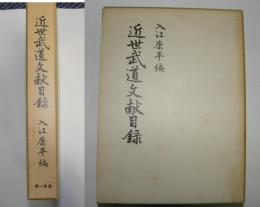 近世武道文献目録
入江康平編
第一書房
入江康平編
近世武道文献目録